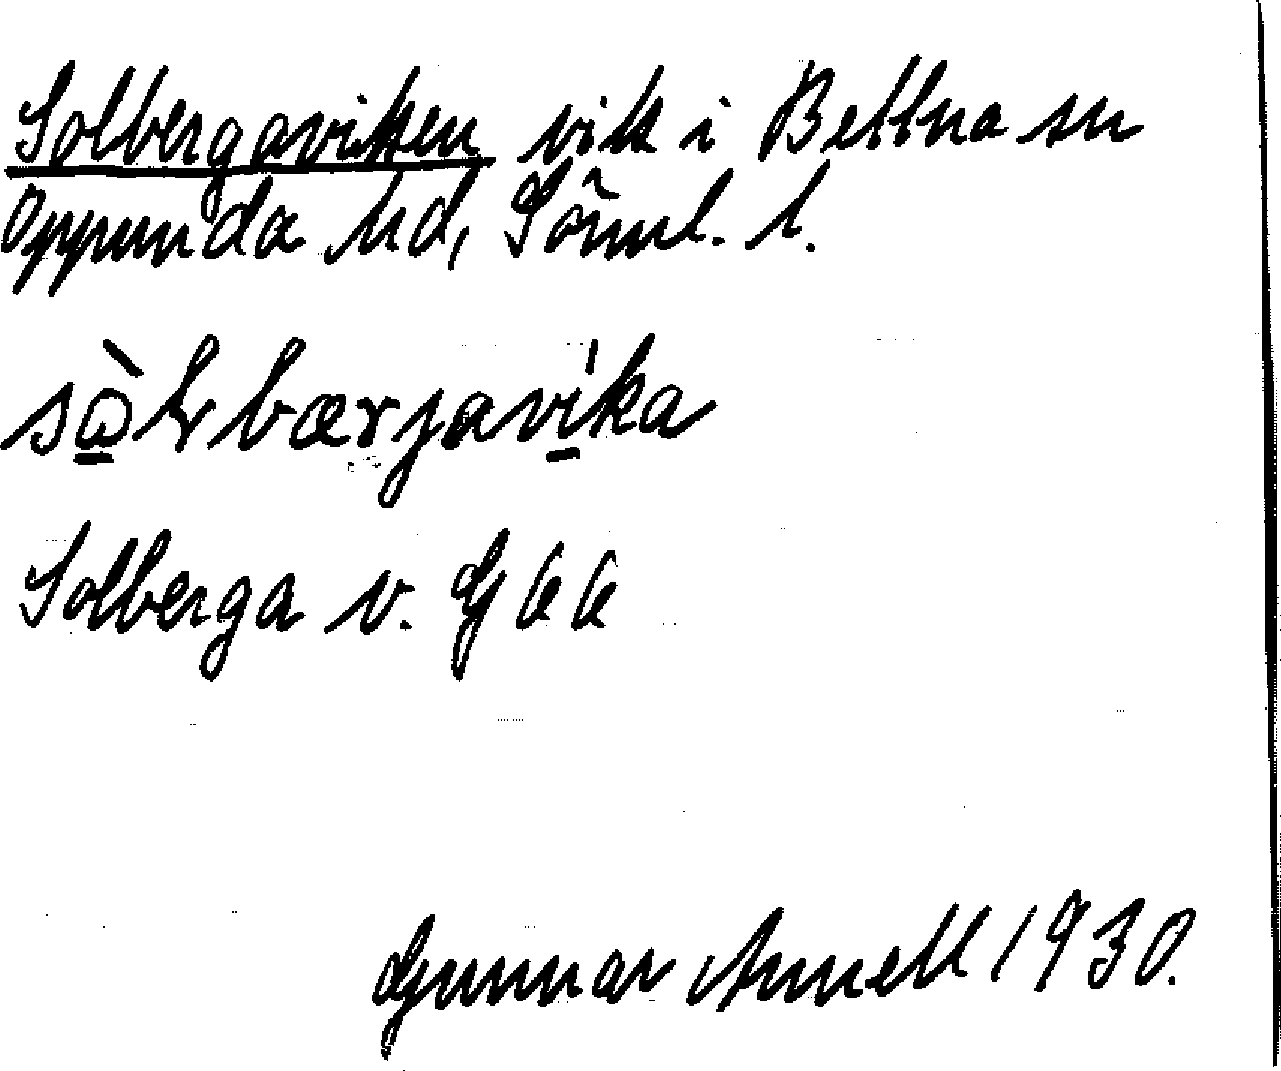 Solbergaviken vik i Bettna sn
Oppunda hd, Sörml. l.
sà̱lbærjaví̱ka
Solberga v. G 66
Gunnar Arnell 1930.